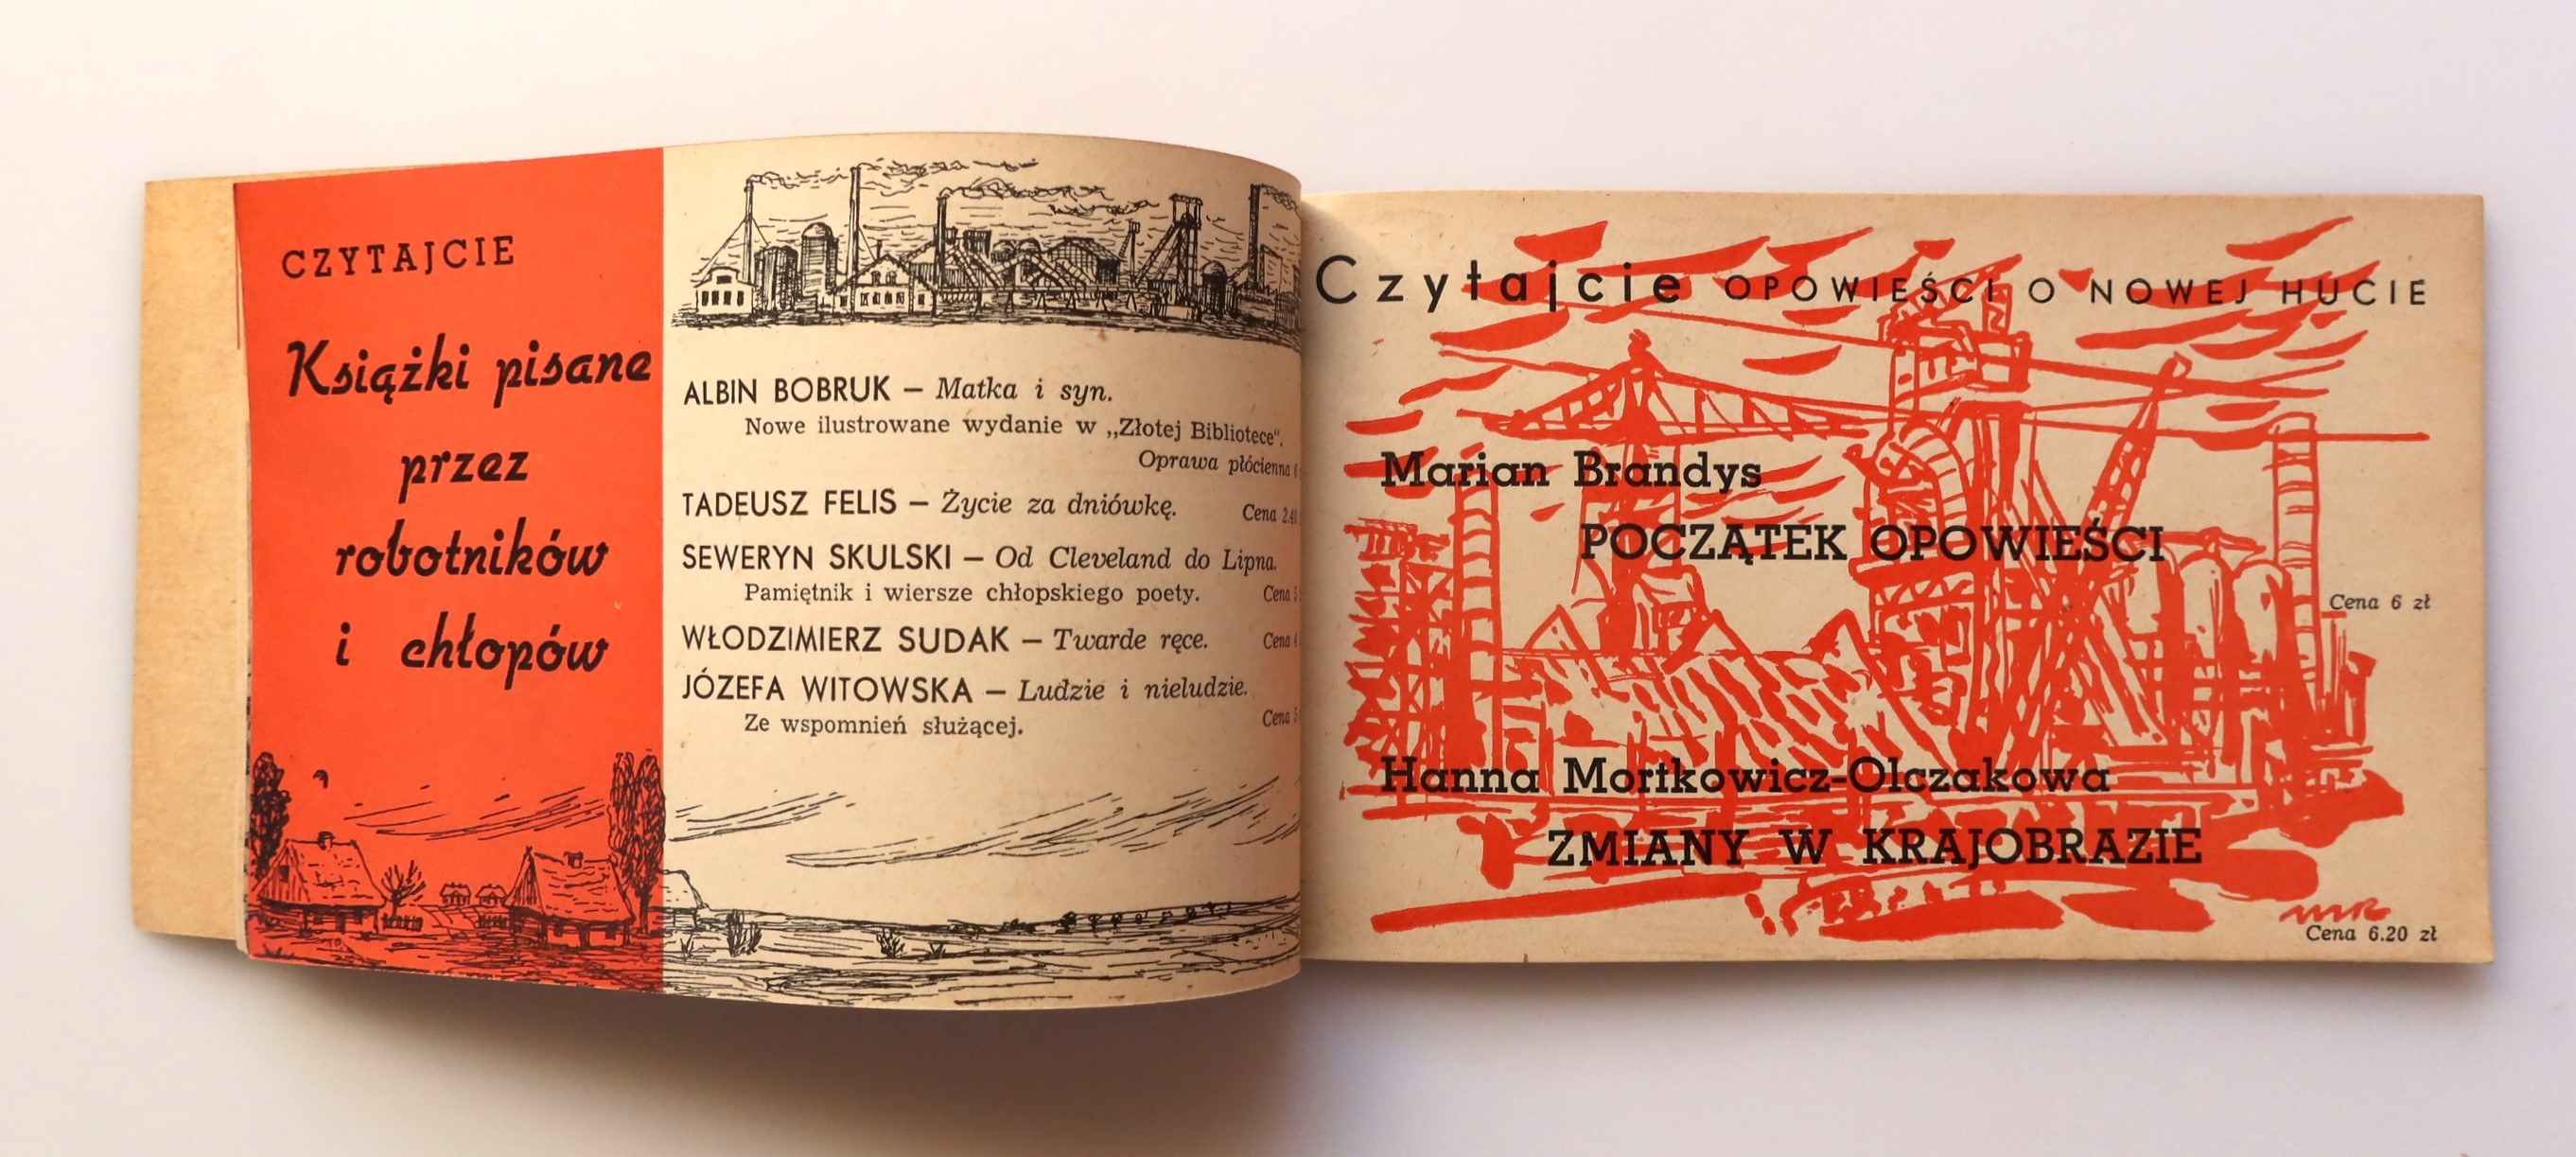 CZYTAJCIE
Książki pisane
przez
robotników
i chłopów
ALBIN BOBRUK — Matka i syn.
Nowe ilustrowane wydanie w „Złotej Bibliotece“.
Oprawa płócienna 6
TADEUSZ FELIS — Życie za dniówkę.
Cena 2.40
SEWERYN SKULSKI — Od Cleveland do Lipna.
Pamiętnik i wiersze chłopskiego poety.
Cena 5
WŁODZIMIERZ SUDAK — Twarde ręce.
Cena 4
JÓZEFA WITOWSKA — Ludzie i nieludzie.
Ze wspomnień służącej.
Cena 5
Czytajcie OPOWIEŚCI O NOWEJ HUCIE
Marian Brandys
POCZĄTEK OPOWIEŚCI
Cena 6 zł
Hanna Mortkowicz-Olczakowa
ZMIANY W KRAJOBRAZIE
Cena 6.20 zł